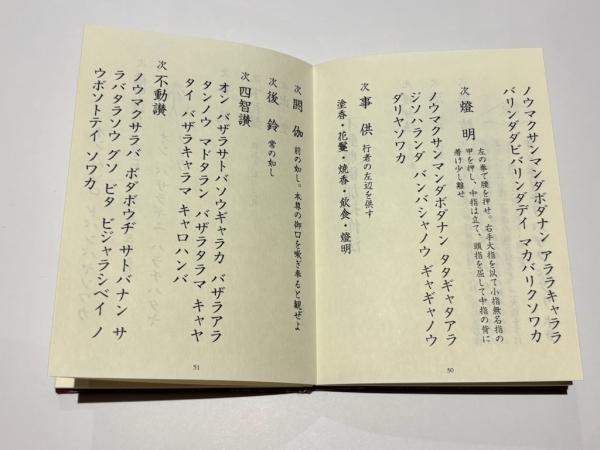 ノウマクサンマンダボダナン アララキャララ
バリンダダビバリンダデイ マカバリクソワカ
次 燈 明
左の拳で腰を押せ。右手大指を以て小指無名指の
甲を押し、中指は立て、頭指を屈して中指の背に
着け少し離せ
ノウマクサンマンダボダナン タタギャタアラ
ジソハランダ バンバシャノウ ギャギャノウ
ダリヤソワカ
次 事 供 行者の左辺を供す
塗香・花鬘・焼香・飲食・燈明
50
次 閼 伽 前の如し。本尊の御口を嗽ぎ奉ると観ぜよ
次 後 鈴 常の如し
次 四智讃
オン バザラサトバソウギャラカ バザラアラ
タンノウ マドタラン バザラタラマ キャヤ
タイ バザラキャラマ キャロハンバ
次 不動讃
ノウマクサラバ ボダボウヂ サトバナン サ
ラバタラソウ グソ ビタ ビジャラシベイ ノ
ウボソトテイ ソワカ
51